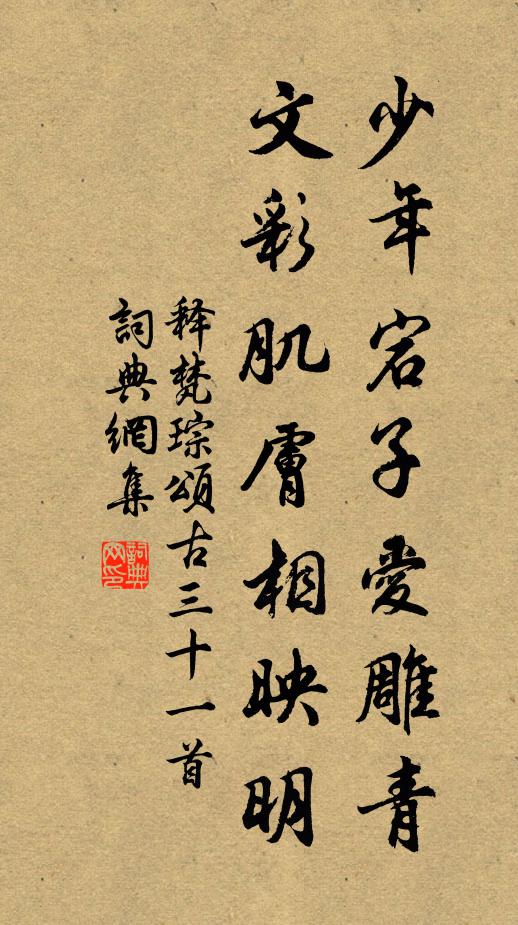 少年宕子愛雕青
文彩肌膚相映明
释梵琮頌古三十一首
詞典網集
詞典
网印